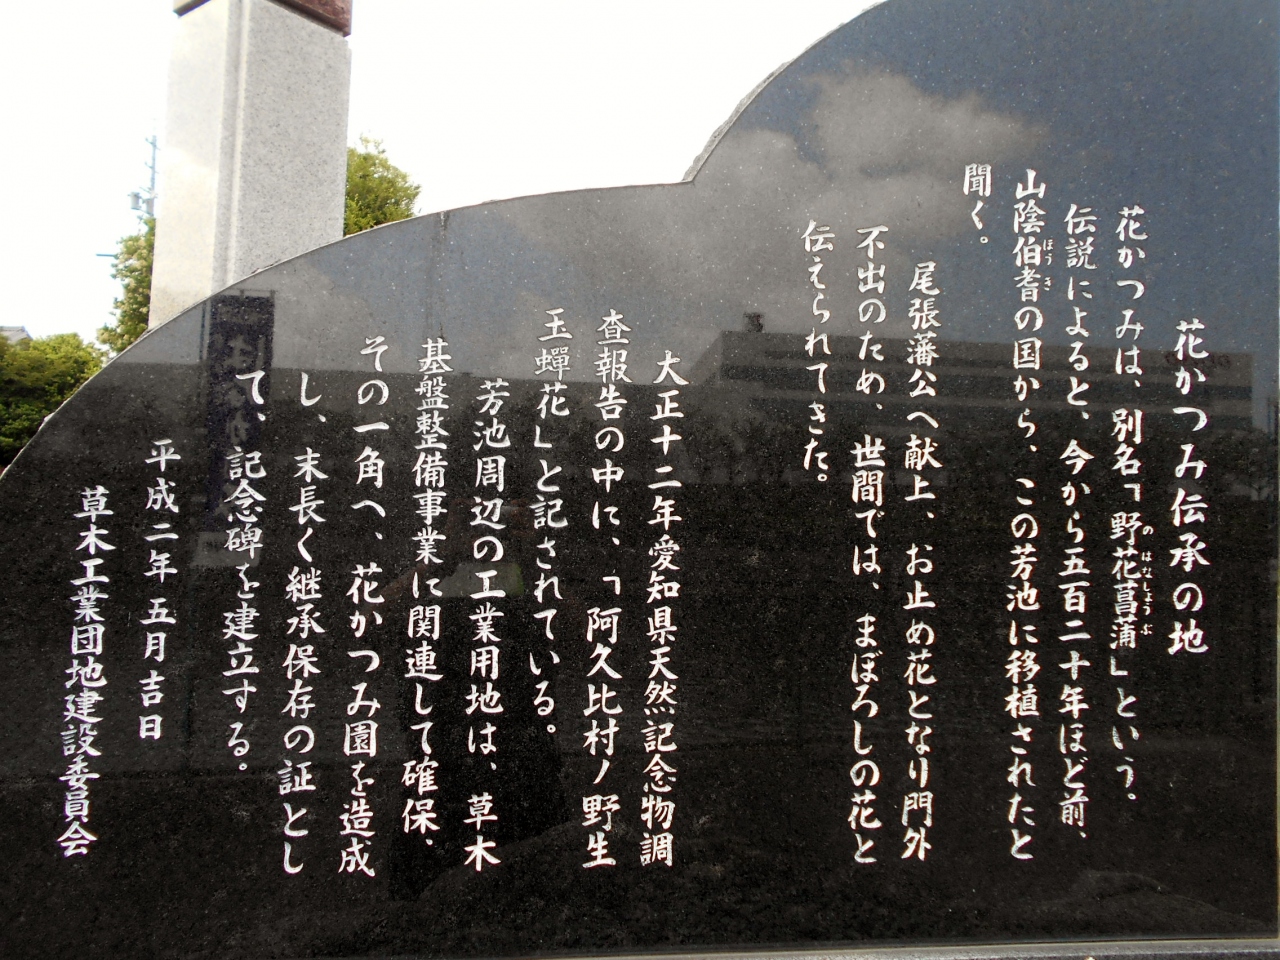 花かつみ伝承の地
花かつみは、別名「野花菖蒲」という。
のはなしょうぶ
伝説によると、今から五百二十年ほど前、
山陰伯耆の国から、この芳池に移植されたと
ほうき
聞く。
尾張藩公へ献上、お止め花となり門外
不出のため、世間では、まぼろしの花と
伝えられてきた。
大正十二年愛知県天然記念物調
査報告の中に、「阿久比村ノ野生
玉蟬花」と記されている。
芳池周辺の工業用地は、草木
基盤整備事業に関連して確保、
その一角へ、花かつみ園を造成
し、末長く継承保存の証とし
て、記念碑を建立する。
平成二年五月吉日
草木工業団地建設委員会